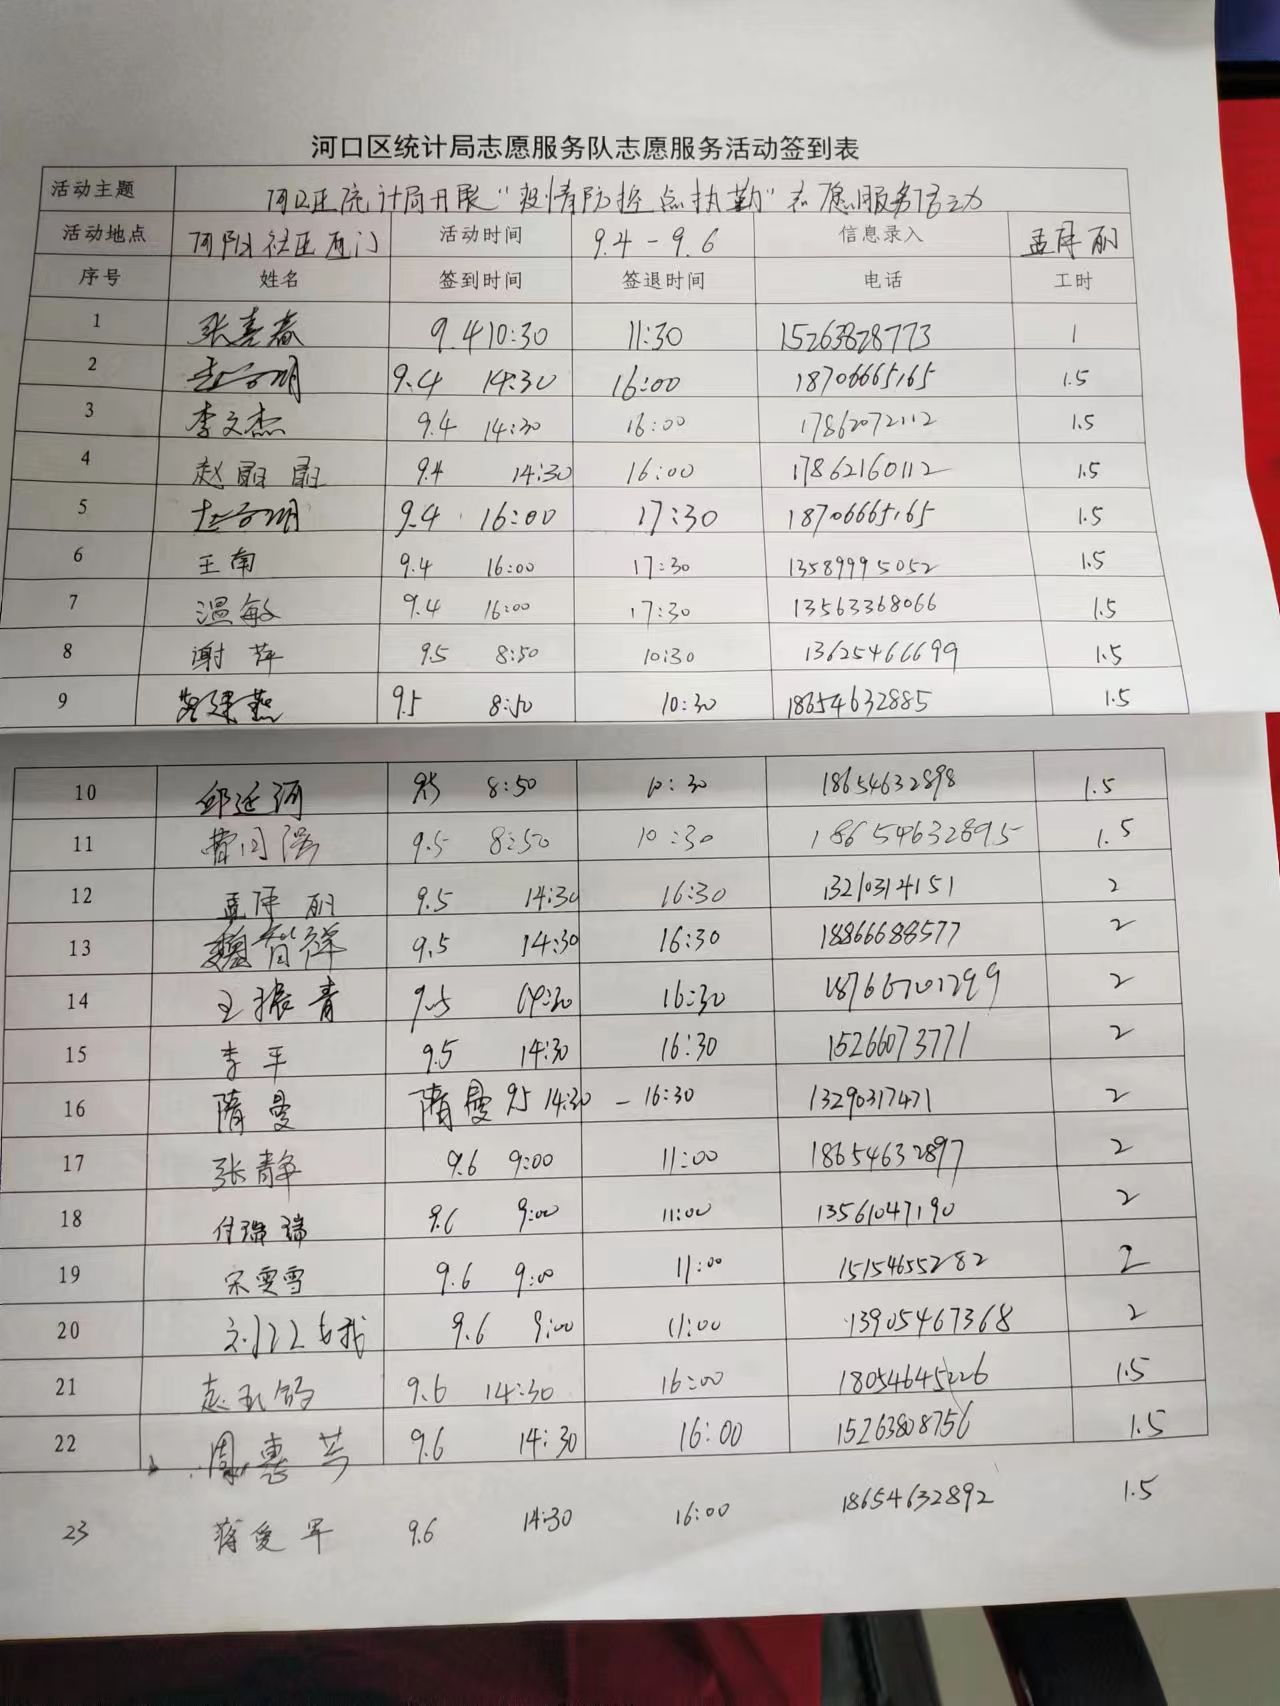 河口区统计局志愿服务队志愿服务活动签到表
活动主题 河口区统计局开展“疫情防控点执勤”志愿服务活动
活动地点 河阳社区西门 活动时间 9.4-9.6 信息录入 孟萍丽
序号 姓名 签到时间 签退时间 电话 工时
1 张喜春 9.4 10:30 11:30 15263828773 1
2 9.4 14:30 16:00 18706665165 1.5
3 李文杰 9.4 14:30 16:00 17862072112 1.5
4 赵丽丽 9.4 14:30 16:00 17862160112 1.5
5 9.4 16:00 17:30 18706665165 1.5
6 王南 9.4 16:00 17:30 13589995052 1.5
7 温敏 9.4 16:00 17:30 13563368066 1.5
8 谢萍 9.5 8:50 10:30 13625466699 1.5
9 建燕 9.5 8:50 10:30 18654632885 1.5
10 邱延河 9.5 8:50 10:30 18654632898 1.5
11 9.5 8:50 10:30 18654632895 1.5
12 孟萍丽 9.5 14:30 16:30 13210314151 2
13 魏智祥 9.5 14:30 16:30 18866688577 2
14 王振青 9.5 14:30 16:30 18766701299 2
15 李平 9.5 14:30 16:30 15266073771 2
16 隋曼 隋曼 9.5 14:30 - 16:30 13290317471 2
17 张静 9.6 9:00 11:00 18654632897 2
18 付瑞瑞 9.6 9:00 11:00 13561047190 2
19 宋雯雪 9.6 9:00 11:00 15154655282 2
20 9.6 9:00 11:00 13905467368 2
21 9.6 14:30 16:00 18054645226 1.5
22 周惠芳 9.6 14:30 16:00 15263808756 1.5
23 蒋爱军 9.6 14:30 16:00 18654632892 1.5